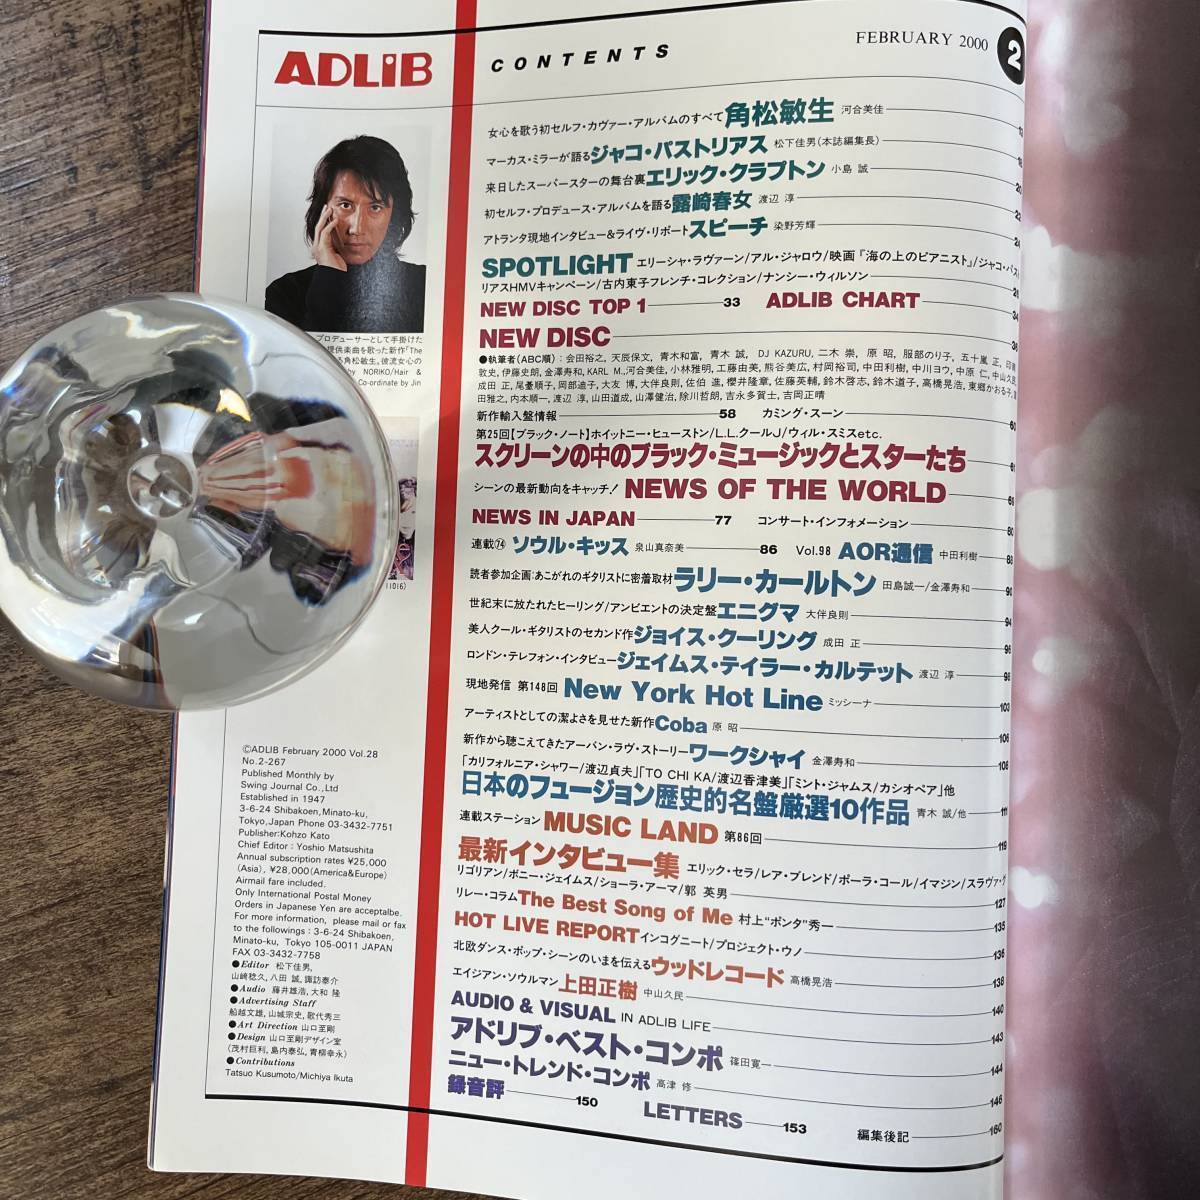 ADLiB
CONTENTS
FEBRUARY 2000 2
女心を歌う初セルフ・カヴァー・アルバムのすべて 角松敏生 河合美佳
マーカス・ミラーが語る ジャコ・パストリアス 松下佳男(本誌編集長)
来日したスーパースターの舞台裏 エリック・クラプトン 小島 誠
初セルフ・プロデュース・アルバムを語る 露崎春女 渡辺 淳
アトランタ現地インタビュー&ライヴ・リポート スピーチ 染野芳輝
SPOTLIGHT エリーシャ・ラヴァーン/アル・ジャロウ/映画『海の上のピアニスト』/ジャコ・パス
リアスHMVキャンペーン/古内東子フレンチ・コレクション/ナンシー・ウィルソン
NEW DISC TOP 1 33 ADLIB CHART 34
NEW DISC 36
●執筆者(ABC順):会田裕之, 天辰保文, 青木和富, 青木 誠, DJ KAZURU, 二木 崇, 原 昭, 服部のり子, 五十嵐 正,
敦史, 伊藤史朗, 金澤寿和, KARL M., 河合美佳, 小林雅明, 工藤由美, 熊谷美広, 村岡裕司, 中田利樹, 中川ヨウ, 中原 仁, 中山久民
成田 正, 尾臺順子, 岡部迪子, 大友 博, 大伴良則, 佐伯 進, 櫻井隆章, 佐藤英輔, 鈴木啓志, 鈴木道子, 高橋晃浩, 東郷かおる子,
田雅之, 内本順一, 渡辺 淳, 山田道成, 山澤健治, 除川哲朗, 吉永多賀士, 吉岡正晴
新作輸入盤情報 58 カミング・スーン 60
第25回【ブラック・ノート】ホイットニー・ヒューストン/L.L.クールJ/ウィル・スミスetc.
スクリーンの中のブラック・ミュージックとスターたち 61
シーンの最新動向をキャッチ! NEWS OF THE WORLD 69
NEWS IN JAPAN 77 コンサート・インフォメーション 80
連載74 ソウル・キッス 泉山真奈美 86 Vol.98 AOR通信 中田利樹 88
読者参加企画:あこがれのギタリストに密着取材 ラリー・カールトン 田島誠一/金澤寿和 90
世紀末に放たれたヒーリング/アンビエントの決定盤 エニグマ 大伴良則 94
美人クール・ギタリストのセカンド作 ジョイス・クーリング 成田 正 96
ロンドン・テレフォン・インタビュー ジェイムス・テイラー・カルテット 渡辺 淳 98
現地発信 第148回 New York Hot Line ミッシーナ 103
アーティストとしての潔よさを見せた新作 Coba 原 昭 106
新作から聴こえてきたアーバン・ラヴ・ストーリー ワークシャイ 金澤寿和 108
「カリフォルニア・シャワー/渡辺貞夫」「TO CHI KA/渡辺香津美」「ミント・ジャムス/カシオペア」他
日本のフュージョン歴史的名盤厳選10作品 青木 誠/他 111
連載ステーション MUSIC LAND 第86回 119
最新インタビュー集 エリック・セラ/レア・ブレンド/ポーラ・コール/イマジン/スラヴァ・グ
リゴリアン/ボニー・ジェイムス/ショーラ・アーマ/郭 英男 127
リレー・コラム The Best Song of Me 村上"ポンタ"秀一 135
HOT LIVE REPORT インコグニート/プロジェクト・ウノ 136
北欧ダンス・ポップ・シーンのいまを伝える ウッドレコード 高橋晃浩 138
エイジアン・ソウルマン 上田正樹 中山久民 140
AUDIO & VISUAL IN ADLIB LIFE 143
アドリブ・ベスト・コンポ 篠田寛一 144
ニュー・トレンド・コンポ 高津 修 146
録音評 150 LETTERS 153 編集後記 160
プロデューサーとして手掛けた
提供楽曲を歌った新作『The
る角松敏生。彼流女心の
by NORIKO/Hair &
Co-ordinate by Jin
©ADLIB February 2000 Vol.28
No.2-267
Published Monthly by
Swing Journal Co.,Ltd
Established in 1947
3-6-24 Shibakoen,Minato-ku,
Tokyo,Japan Phone 03-3432-7751
Publisher:Kohzo Kato
Chief Editor : Yoshio Matsushita
Annual subscription rates ¥25,000
(Asia), ¥28,000(America&Europe)
Airmail fare included.
Only International Postal Money
Orders in Japanese Yen are acceptalbe.
For more information, please mail or fax
to the followings : 3-6-24 Shibakoen,
Minato-ku, Tokyo 105-0011 JAPAN
FAX 03-3432-7758
●Editor 松下佳男,
山崎稔久, 八田 誠, 諏訪泰介
●Audio 藤井雄浩, 大和 隆
●Advertising Staff
船越文雄, 山城宗史, 歌代秀三
●Art Direction 山口至剛
●Design 山口至剛デザイン室
(茂村巨利, 島内泰弘, 青柳幸永)
●Contributions
Tatsuo Kusumoto/Michiya Ikuta